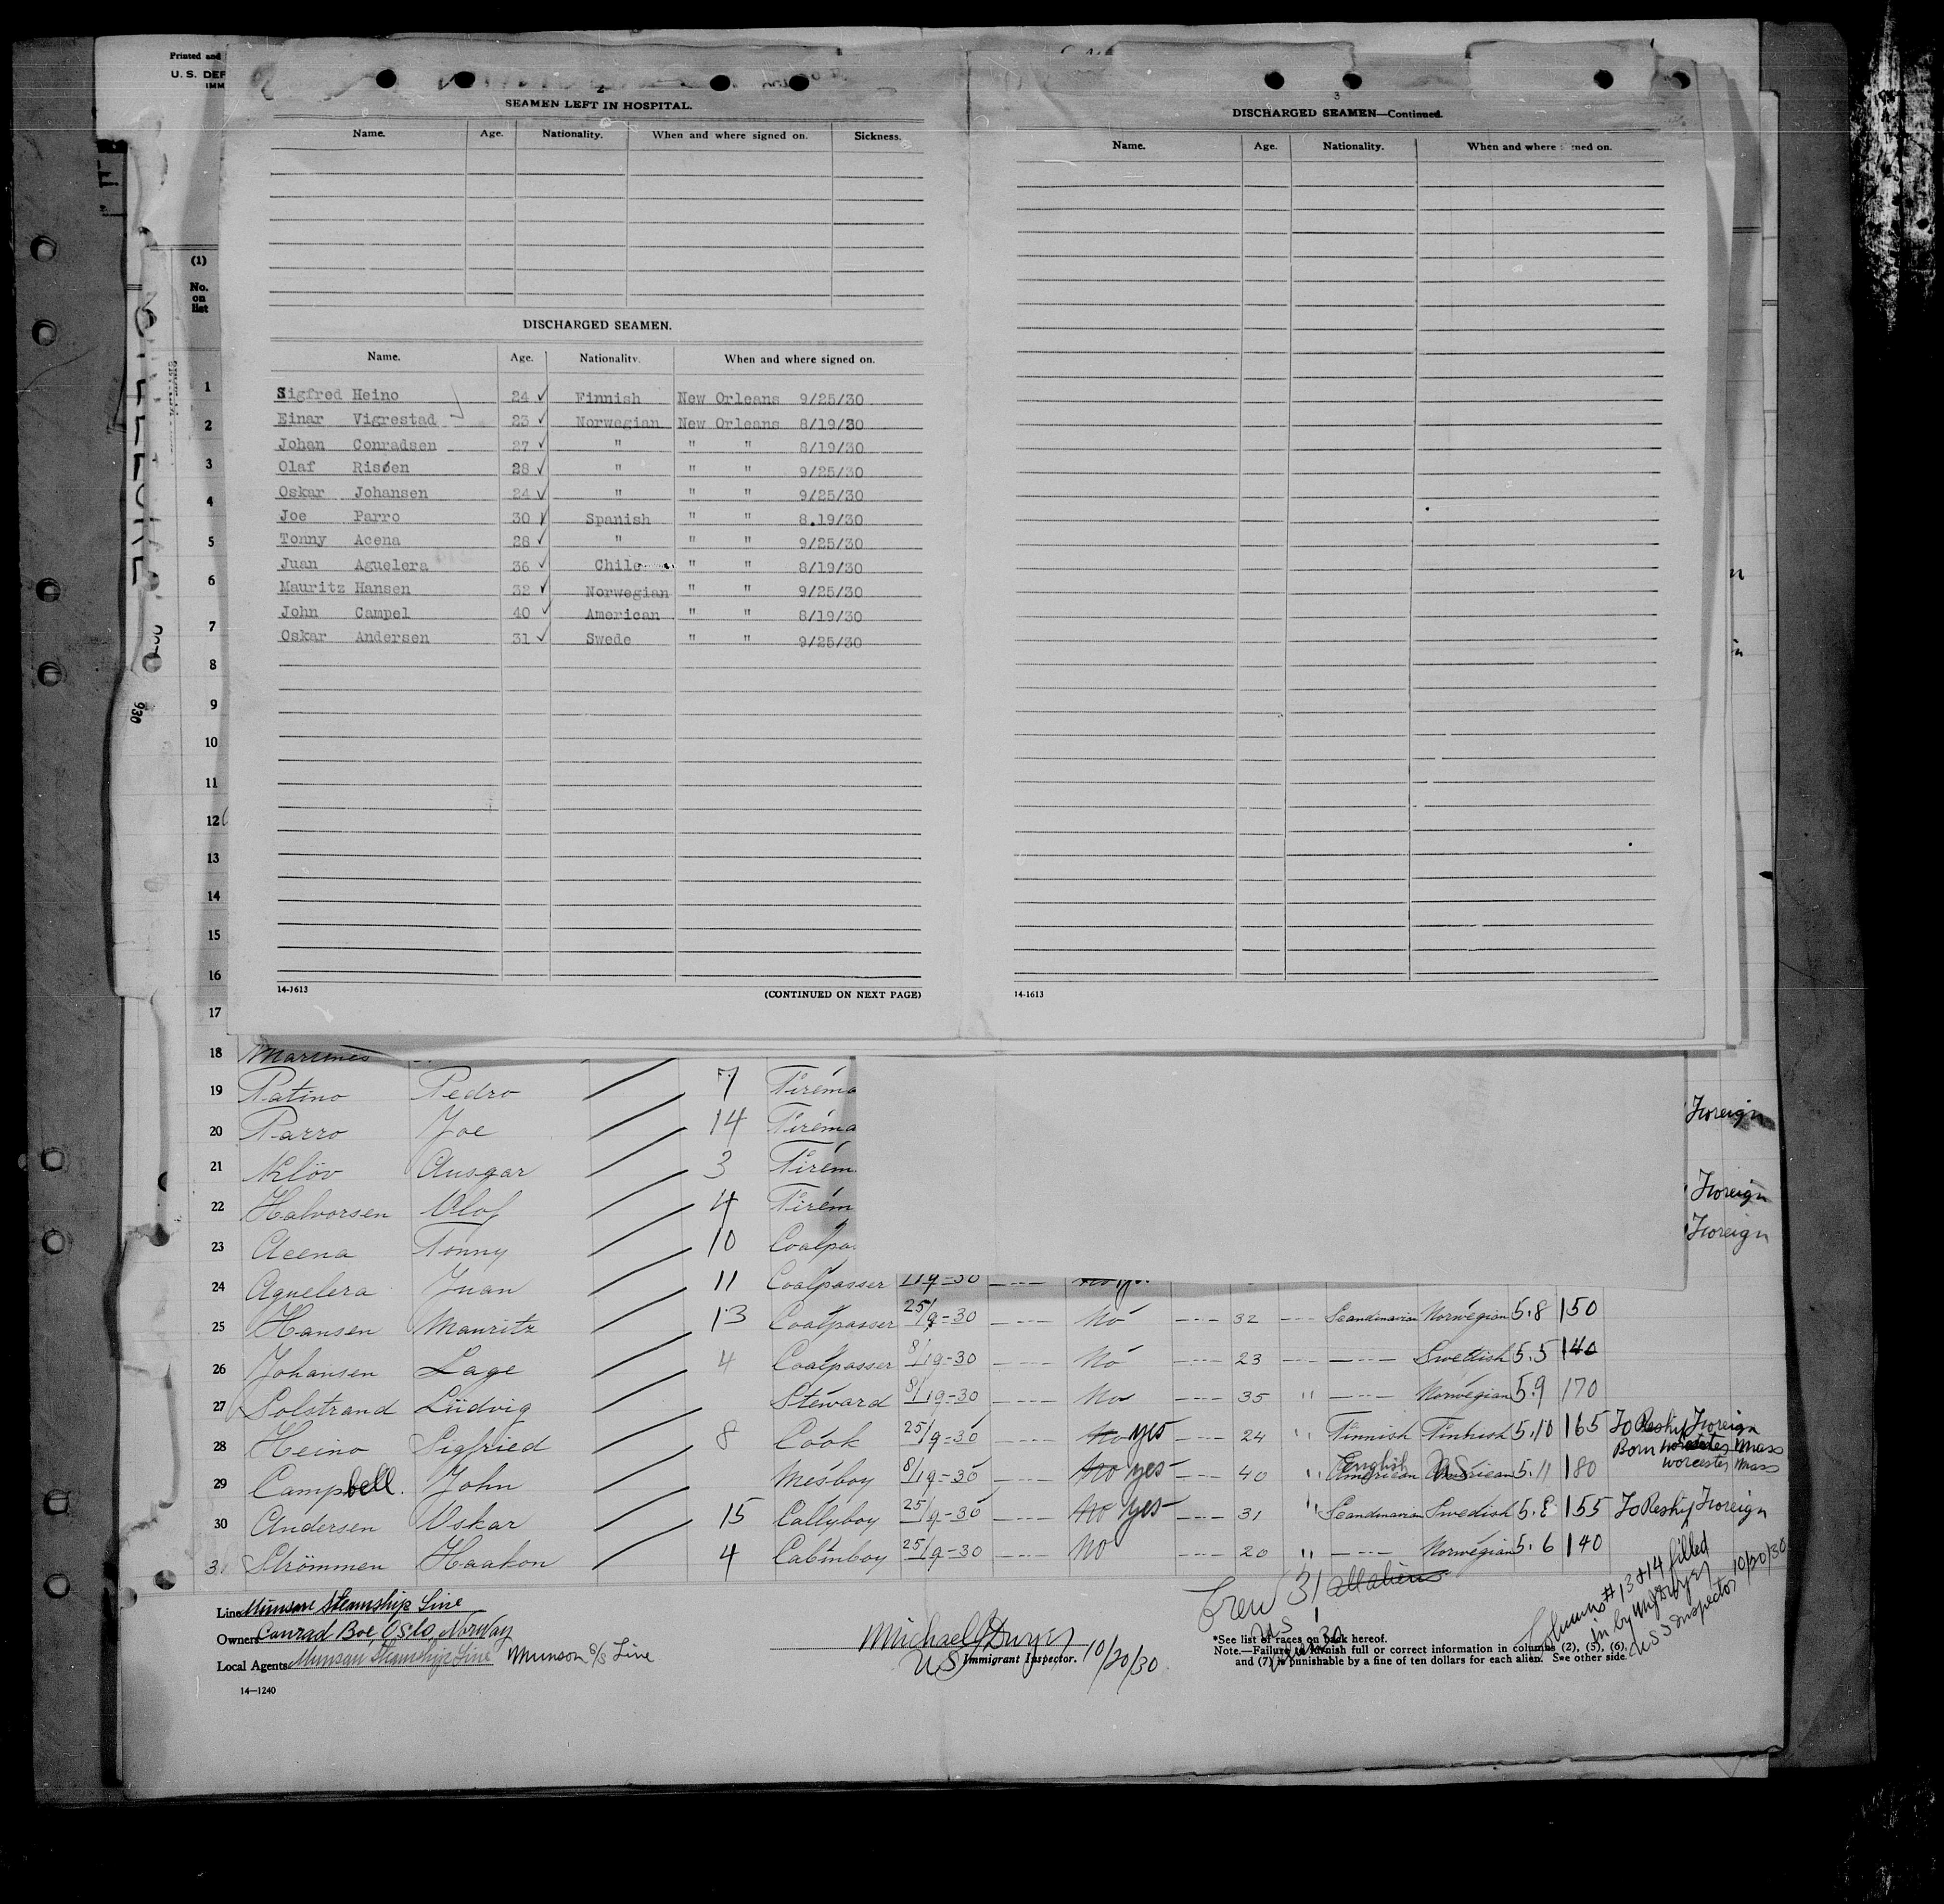 Printed and
U. S. DEP
IMM
2
SEAMEN LEFT IN HOSPITAL.
Name. Age. Nationality. When and where signed on. Sickness.
DISCHARGED SEAMEN.
Name. Age. Nationality. When and where signed on.
Sigfred Heino 24 ✓ Finnish New Orleans 9/25/30
Einar Vigrestad ✓ 23 ✓ Norwegian New Orleans 8/19/30
Johan Conradsen 27 ✓ " " " 8/19/30
Olaf Risøen 28 ✓ " " " 9/25/30
Oskar Johansen 24 ✓ " " " 9/25/30
Joe Parro 30 ✓ Spanish " " 8.19/30
Tonny Acena 28 ✓ " " " 9/25/30
Juan Aguelera 36 ✓ Chile " " 8/19/30
Mauritz Hansen 32 ✓ Norwegian " " 9/25/30
John Campel 40 ✓ American " " 8/19/30
Oskar Andersen 31 ✓ Swede " " 9/25/30
14-1613 (CONTINUED ON NEXT PAGE)
3
DISCHARGED SEAMEN—Continued.
Name. Age. Nationality. When and where signed on.
14-1613
(1)
No.
on
list
1
2
3
4
5
6
7
8
9
10
11
12
13
14
15
16
17
18
19 Patino Pedro 7 Firema
20 Parro Joe 14 Firema Foreign
21 Kløv Ansgar 3 Firem
22 Halvorsen Olof 4 Firem Foreign
23 Acena Tonny 10 Coalpa Foreign
24 Aguelera Juan 11 Coalpasser 19-30
25 Hansen Mauritz 13 Coalpasser 25/9-30 No 32 Scandinavian Norwegian 5.8 150
26 Johansen Lage 4 Coalpasser 8/19-30 No 23 Swedish 5.5 140
27 Solstrand Ludvig Steward 8/19-30 No 35 " Norwegian 5.9 170
28 Heino Sigfried 8 Cook 25/9-30 No yes 24 " Finnish Finnish 5.10 165 To Reship Foreign
Born Worcester Mass
29 Campbell. John Mesboy 8/19-30 No yes 40 " English American US American 5.11 180 Worcester Mass
30 Andersen Oskar 15 Gallyboy 25/9-30 No yes 31 " Scandinavian Swedish 5.8 155 To Reship Foreign
3 Strömmen Haakon 4 Cabinboy 25/9-30 No 20 " Norwegian 5.6 140
Crew 31 all aliens
US 1
Columns #13 & 14 filled
in by M J Dwyer
U S Inspector 10/20/30
Line Munson Steamship Line
Owners Conrad Boe, Oslo, Norway
Local Agents Munson Steamship Line Munson S/S Line
Michael J Dwyer
US Immigrant Inspector. 10/20/30
*See list of races on back hereof.
Note.—Failure to furnish full or correct information in columns (2), (5), (6),
and (7) is punishable by a fine of ten dollars for each alien. See other side.
14—1240